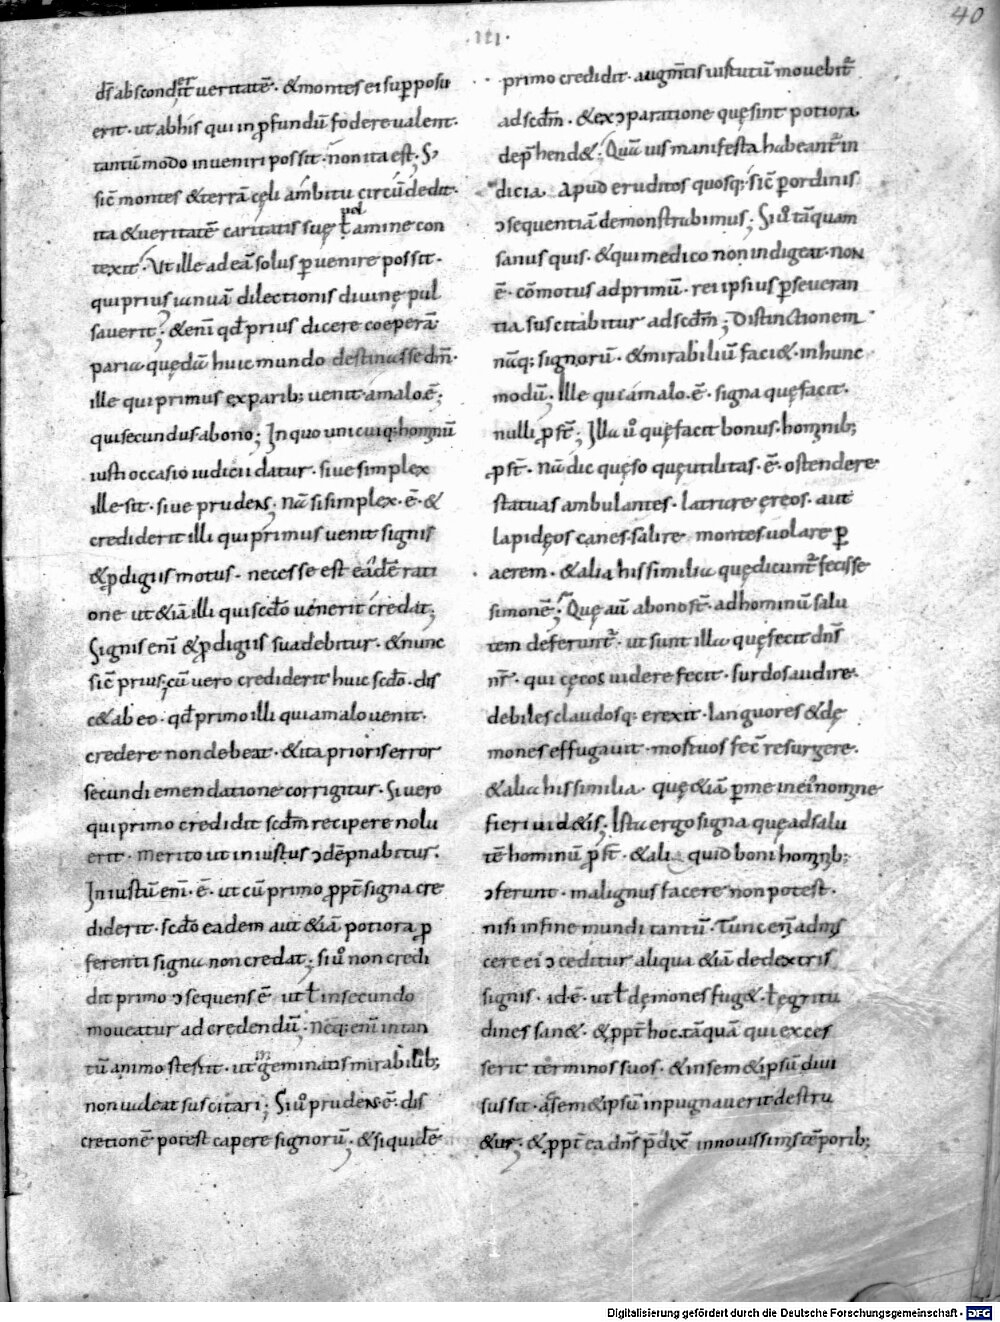 40
.III.
d̄s abscond&er̄it ueritatē· &montes ei supposu
erit· ut abhis qui in ꝓfundū fodere ualent·
tantū modo inueniri possit· non ita est; S;
sic̄ montes &terrā cęli ambitu circūdedit·
ita &ueritatē caritatis suę ꝉ uel amine con
texit· Vt ille ad eā solus ꝑuenire possit·
qui prius ianuā dilectionis diuinę pul
sauerit; &enī qd̄ prius dicere coeperā
paria quędā huic mundo destinasse dm̄·
ille qui primus exparib; uenit amalo.ē;
qui secundus abono; In quo unicuiq; hominū
iusti occasio iudicii datur· siue simplex
ille sit· siue prudens; Nā si simplex·ē·&
crediderit illi qui primus uenit signis
&ꝓdigiis motus· necesse est eādē rati
one ut &iā illi qui scd̄o uenerit credat;
Signis enī &ꝓdigiis suadebitur· &nunc
sic̄ prius; cū uero crediderit huic scd̄o· dis
c& ab eo· qd̄ primo illi qui amalo uenit·
credere non debeat· &ita prioris error
secundi emendatione corrigitur· Si uero
qui primo credidit scdm̄ recipere nolu
erit· merito ut iniustus ɔdēpnabitur·
Iniustū enī·ē· ut cū primo ꝓpt̄ signa cre
diderit· scd̄o eadem aut &iā potiora ꝓ
ferenti signa non credat; si u̇ non credi
dit primo ɔsequens ē ut ꝉ insecundo
moueatur ad credendū· Neq; enī in tan
tū animo stertit· ut ingeminatis mirabilib;
non ualeat suscitari; Si u̇ prudens·ē· dis
cretionē potest capere signorū; &siquidē
primo credidit· augm̄tis uirtutū mouebit̄
ad scdm̄· &exɔparatione quę sint potiora
dep̄hend&; Quā uis manifesta habeant̄ in
dicia· Apud eruditos quosq; sic̄ ꝑordinis
ɔsequentiā demonstrabimus; Si u̇ tāquam
sanus quis· &qui medico non indigeat· non
ē· cōmotus ad primū· rei ipsius ꝑseueran
tia suscitabitur ad scdm̄; Distinctionem
nāq; signorū· &mirabiliū faci& in hunc
modū· Ille qui amalo·ē· signa quę facit·
nulli ꝓst̄; Illa u̇ quę facit bonus· hominib;
ꝓst̄· Nā dic quęso quę utilitas·ē· ostendere
statuas ambulantes· latrare ęreos· aut
lapidęos canes· salire montes· uolare ꝑ
aerem· &alia his similia quę dicunt̄ fecisse
simonē; Quę aū abono st̄· ad hominū salu
tem deferunt̄· ut sunt illa quę fecit dn̄s
nr̄· qui cęcos uidere fecit· surdos audire·
debiles claudosq; erexit· languores &dę
mones effugauit· mortuos fec̄ resurgere·
&alia his similia· quę &iā ꝑme in ei' nomine
fieri uid&is; Ista ergo signa quę ad salu
tē hominū ꝓst̄· &ali quid boni hominib;
ɔferunt· malignus facere non potest·
nisi in fine mundi tantū· Tunc enī admis
cere ei ɔceditur aliqua &iā de dextris
signis· id·ē· ut ꝉ dęmones fug&· ꝉ ęgritu
dines san&· &ꝓpt̄ hoc· tāquā qui exces
serit terminos suos· &in sem&ipsū diui
sus sit· ā sem&ipsū inpugnauerit destru
&ur; &ꝓpt̄ ea dn̄s p̄dix̄ in nouissimis tēporib;
Digitalisierung gefördert durch die Deutsche Forschungsgemeinschaft - DFG